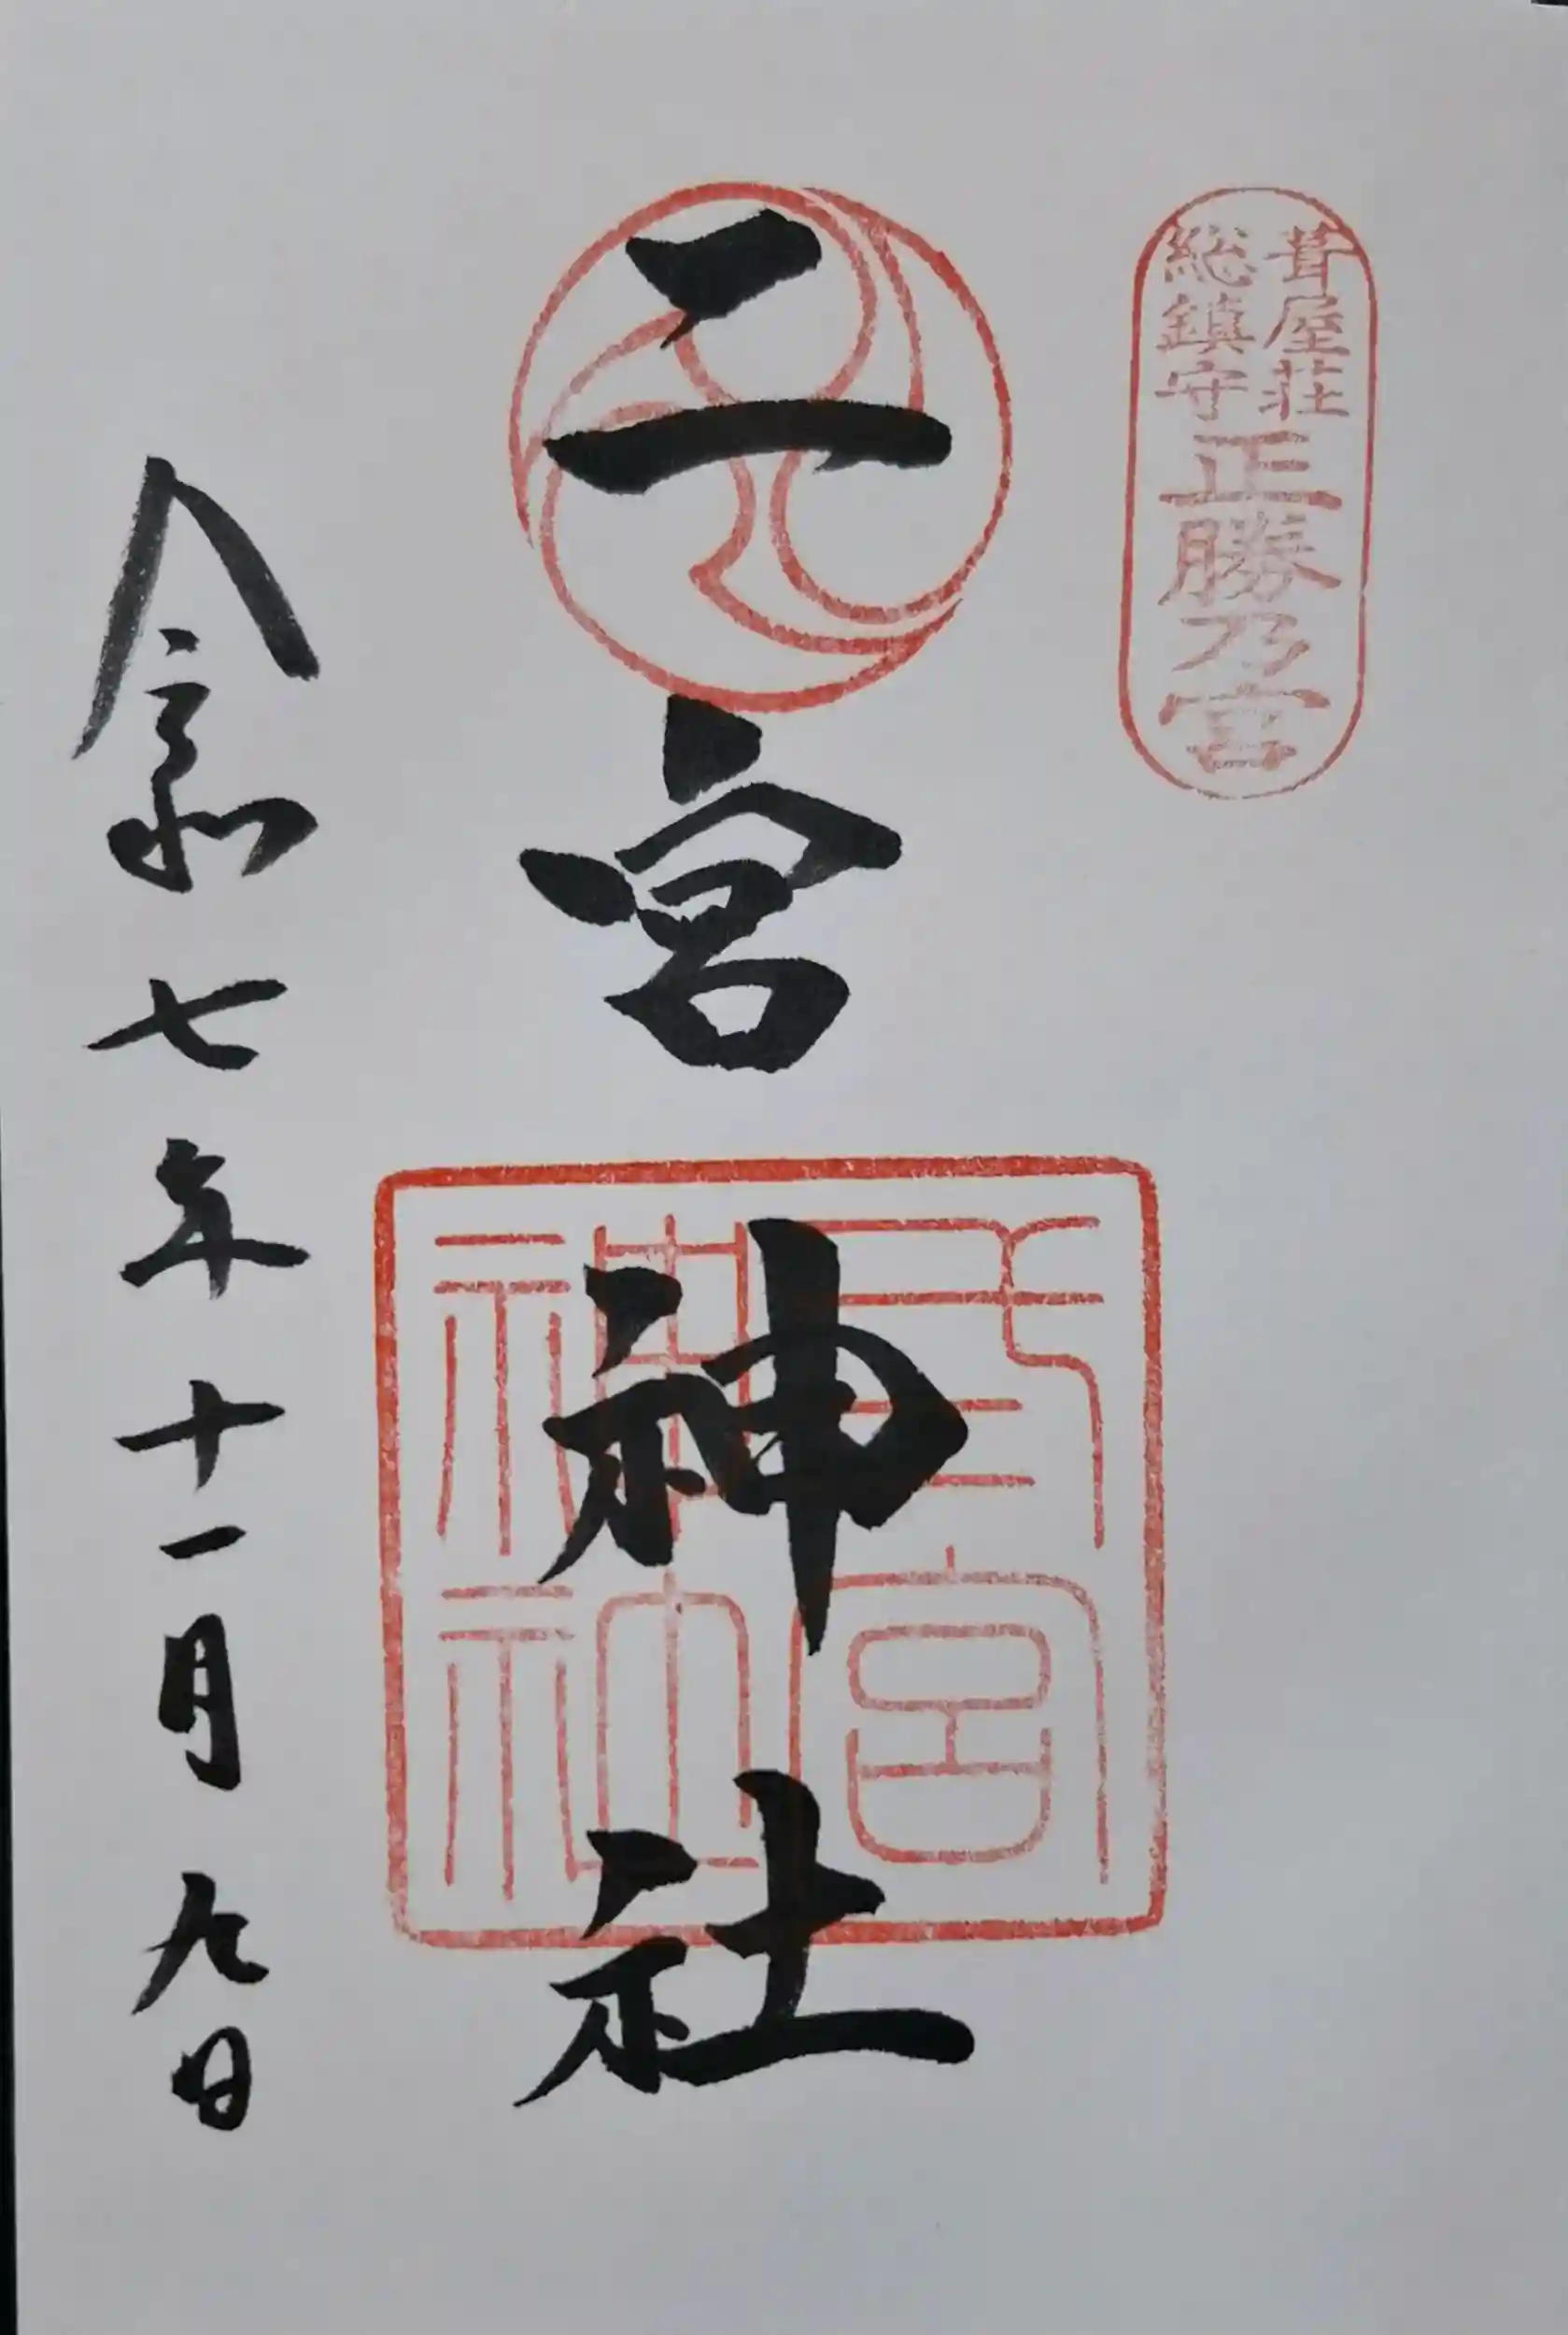 葺屋荘
総鎮守
正勝乃宮
二宮神社
宮
神社
令和七年十一月九日